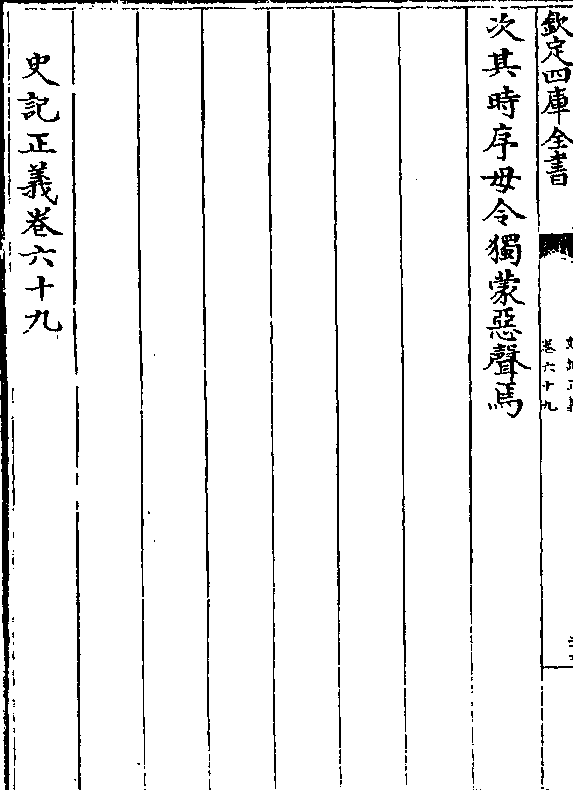 欽定四庫全書
史記正義
卷六十九
次其時序毋令獨蒙惡聲焉
史記正義卷六十九